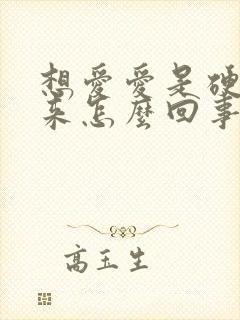 想愛愛是硬
來怎麼回事
高玉生